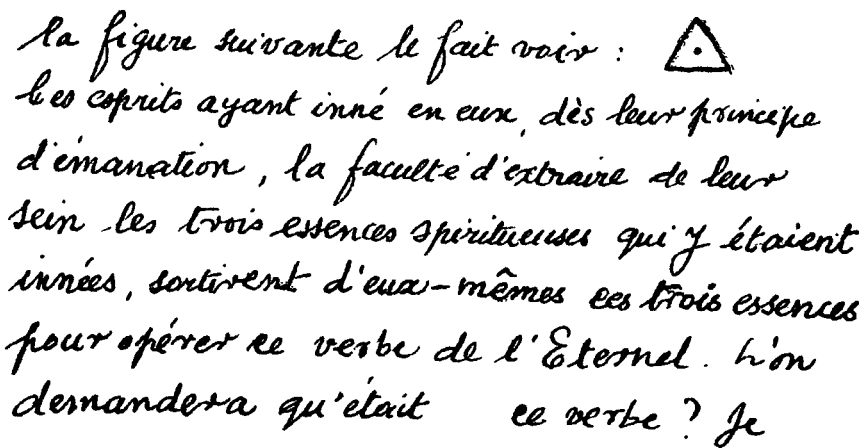 la figure suivante le fait voir :
Les esprits ayant inné en eux, dès leur principe
d'émanation, la faculté d'extraire de leur
sein les trois essences spiritueuses qui y étaient
innées, sortirent d'eux-mêmes ces trois essences
pour opérer ce verbe de l'Eternel. L'on
demandera qu'était ce verbe ? Je